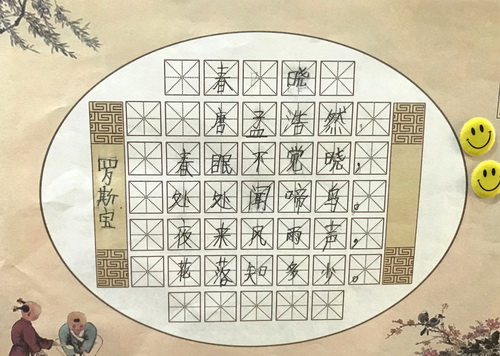 春晓
唐 孟浩然
春眠不觉晓,
处处闻啼鸟。
夜来风雨声,
花落知多少。
罗斯宝